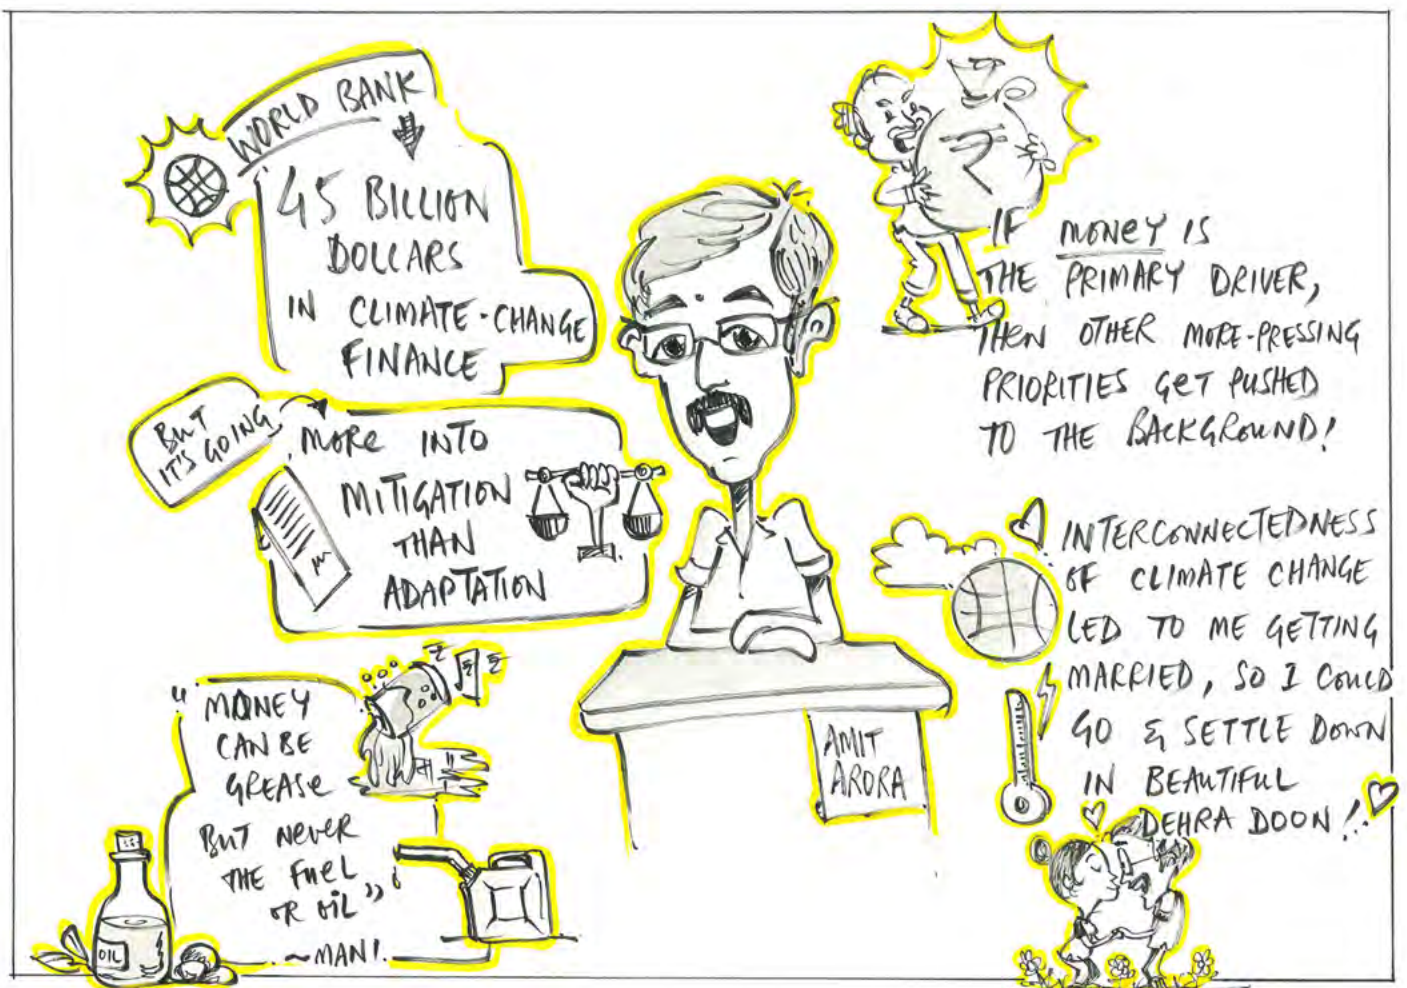 WORLD BANK
45 BILLION
DOLLARS
IN CLIMATE-CHANGE
FINANCE
BUT
IT'S GOING
MORE INTO
MITIGATION
THAN
ADAPTATION
"MONEY
CAN BE
GREASE
BUT NEVER
THE FUEL
OR OIL"
~MANI.
OIL
₹
₹
₹
AMIT
ARORA
₹
IF MONEY IS
THE PRIMARY DRIVER,
THEN OTHER MORE-PRESSING
PRIORITIES GET PUSHED
TO THE BACKGROUND!
INTERCONNECTEDNESS
OF CLIMATE CHANGE
LED TO ME GETTING
MARRIED, SO I COULD
GO & SETTLE DOWN
IN BEAUTIFUL
DEHRA DOON!